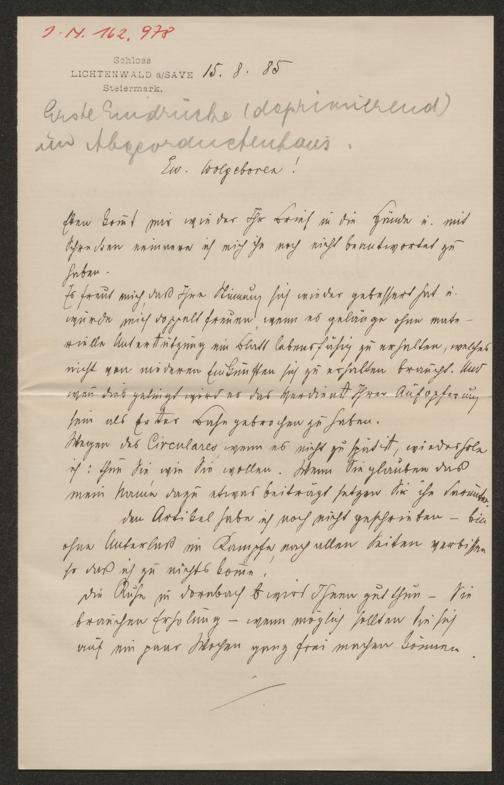 J. N. 162.978
Schloss
LICHTENWALD a/SAVE
Steiermark.
15. 8. 85
Erste Eindrücke (deprimierend)
im Abgeordnetenhaus.
Ew. Wolgeboren!
Eben komt mir wieder Ihr Brief in die Hände u. mit
Schrecken erinnere ich mich ihn noch nicht beantwortet zu
haben.
Es freut mich, daß Ihre Stimung sich wieder gebessert hat u.
würde mich doppelt freuen, wenn es gelänge ohne mate-
rielle Unterstützung ein Blatt lebensfähig zu erhalten, welches
nicht von niederen Einkünften sich zu erhalten braucht. Und
wenn dies gelingt wird es das Verdienst Ihrer Aufopferung
sein als Erster Bahn gebrochen zu haben.
Wegen des Circulares, wenn es nicht zu spät ist, wiederhole
ich: thun Sie wie Sie wollen. Wenn Sie glauben das
mein Name dazu etwas beiträgt setzen Sie ihn darunter.
den Artikel habe ich noch nicht geschrieben – bin
ohne Unterlaß im Kampfe, nach allen Seiten verbissen
so daß ich zu nichts kome!
Die Ruhe in Dornbach wird Ihnen gut thun – Sie
brauchen Erholung – wenn möglich sollten Sie sich
auf ein paar Wochen ganz frei machen können.